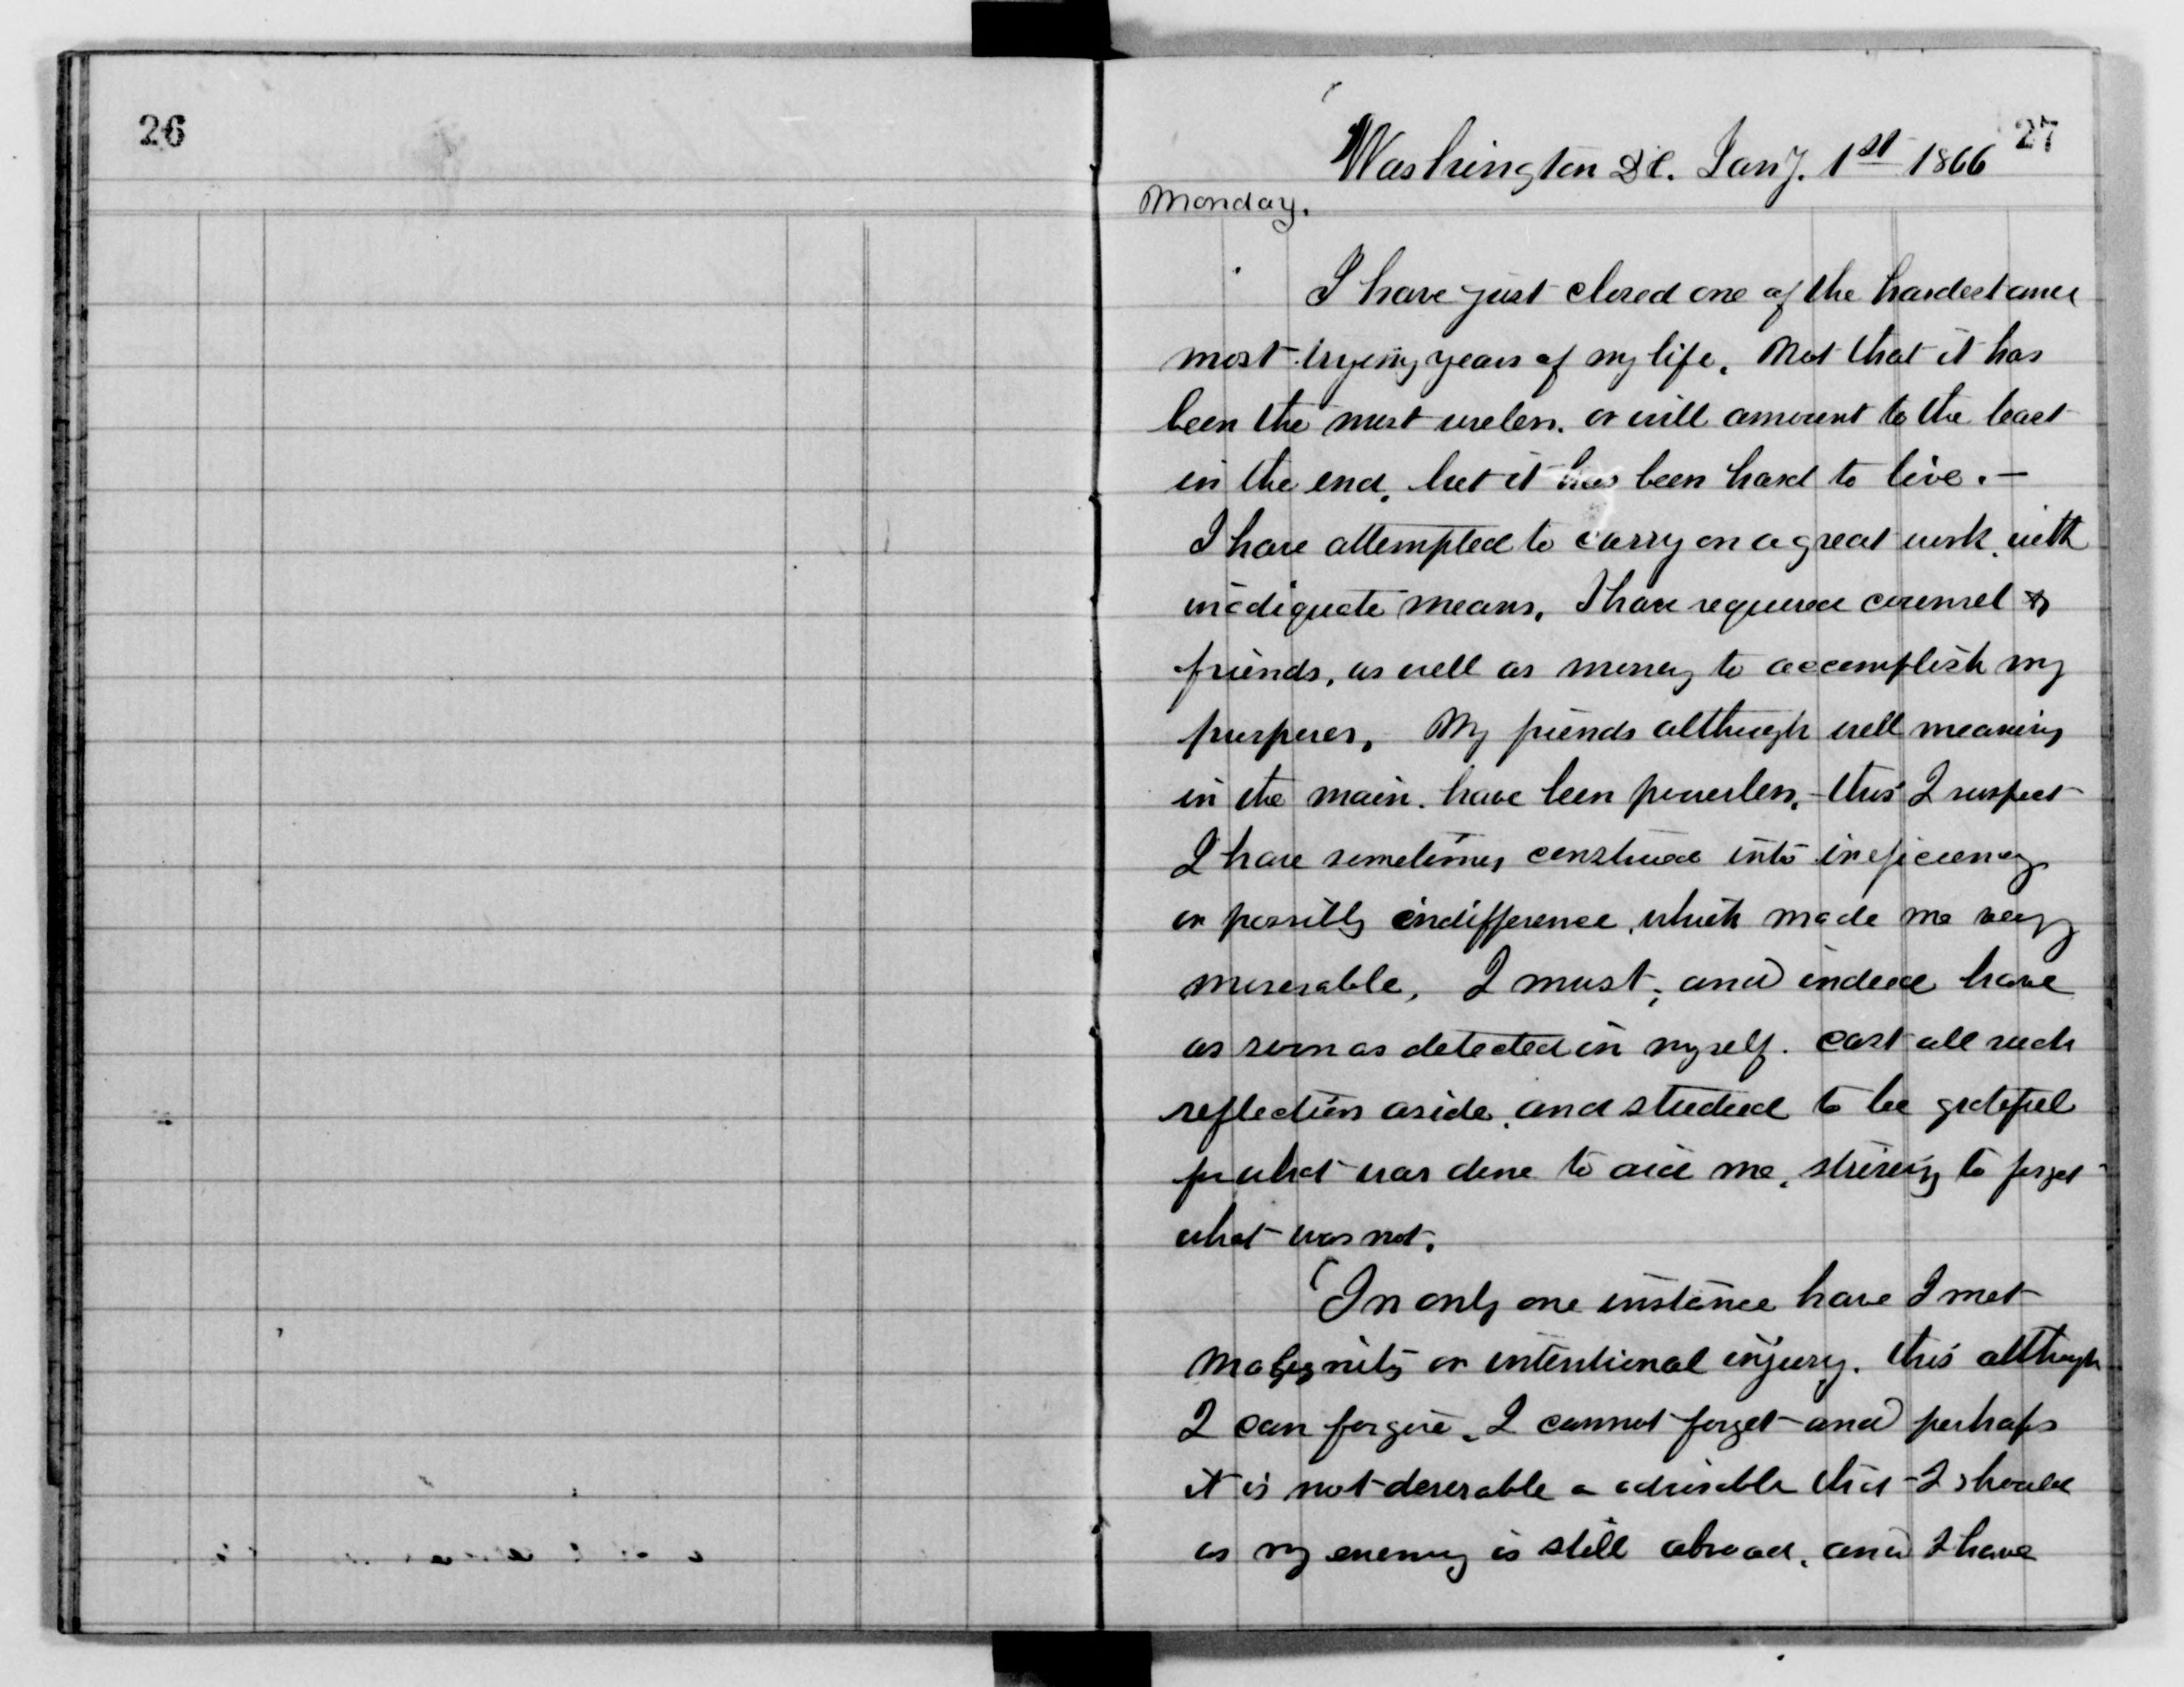 26
27
Washington DC. Jany. 1st 1866
Monday.
I have just closed one of the hardest and
most trying years of my life. Not that it has
been the most useless. or will amount to the least
in the end, but it has been hard to live. —
I have attempted to carry on a great work, with
inadiquate means, I have required counsel &
friends, as well as money to accomplish my
purposes, My friends although well meaning
in the main. have been powerless, - this I suspect
I have sometimes construed into ineficiency
or possibly indifference, which made me very
miserable, I must, and indeed have
as soon as detected in myself. cast all such
reflection aside, and studied to be grateful
for what was done to aid me, striving to forget
what was not.
In only one instance have I met
malignity or intentional injury. this although
I can forgive, I cannot forget and perhaps
it is not deserable or advisable that I should
as my enemy is still abroad, and I have